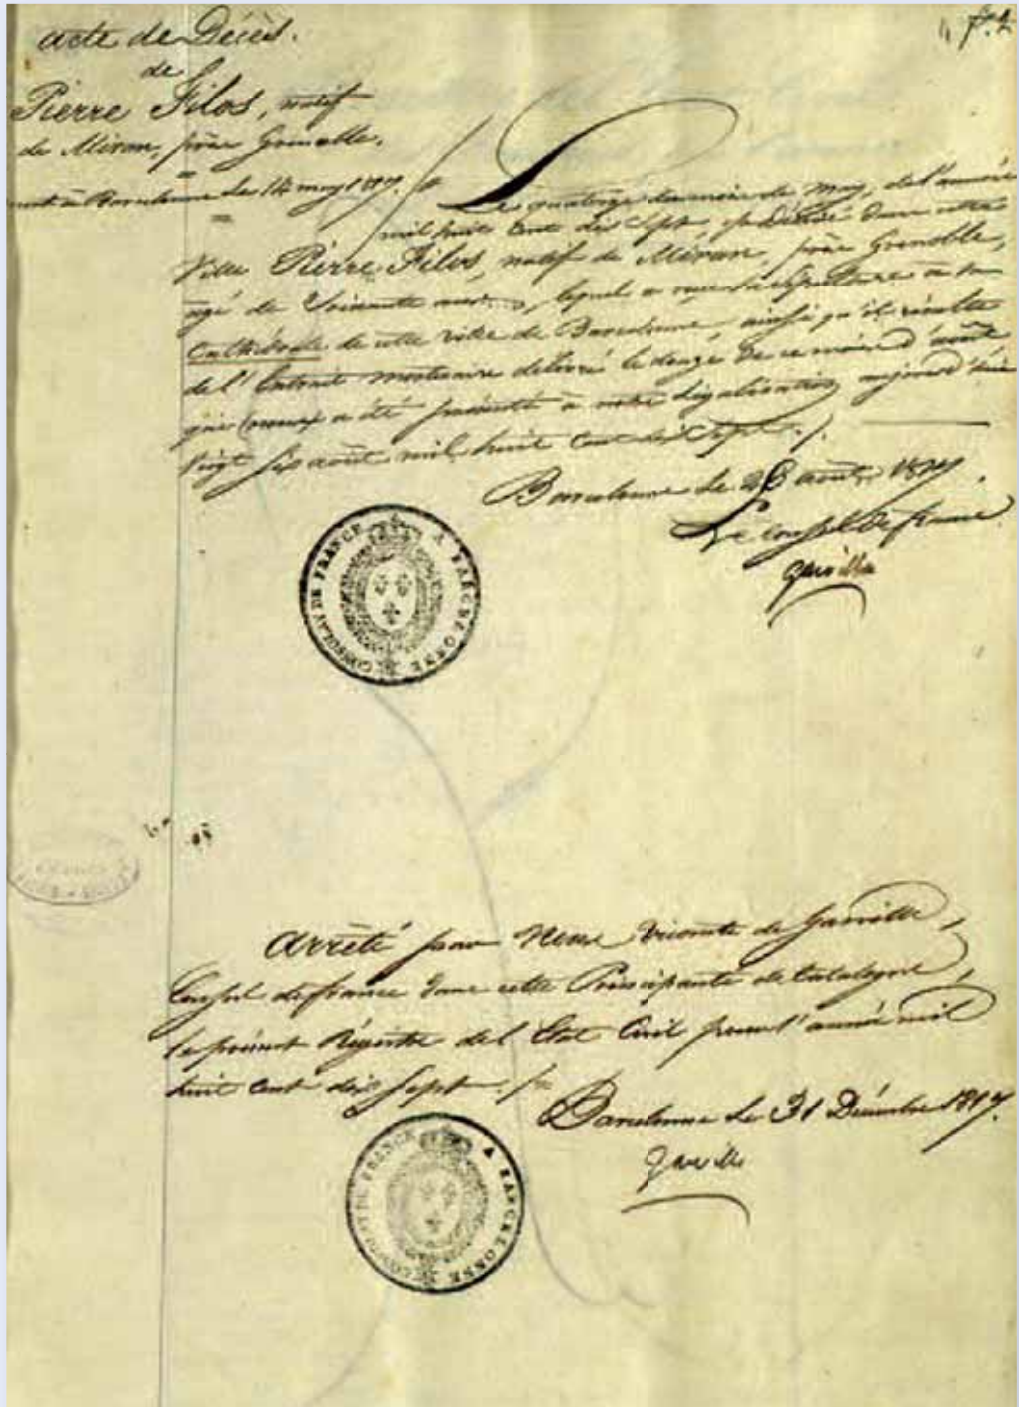 f.2
acte de Décès.
de
Pierre Filos, natif
de Miran, près Grenoble.
mort à Barcelonne le 14 may 1817.
Le quatorze du mois de May, de l'année
mil huit cent dix sept, est Décédé dans cette
Ville Pierre Filos, natif de Miran, près Grenoble,
agé de Soixante ans, lequel a reçu la sépulture à la
Cathédrale de cette ville de Barcelonne, ainsi qu'il résulte
de l'Extrait mortuaire délivré le douze de ce mois d'août
qui nous a été présenté à notre Légalisation aujourd'hui
Vingt six août mil huit Cent dix sept./.
Barcelonne le 26 août 1817.
Le Consul de france
Garville
CONSULAT DE FRANCE A BARCELONNE
arrêté par Nous Vicomte de Garville,
Consul de france dans cette Principauté de Catalogne,
le présent Régistre de l'Etat Civil pour l'année mil
huit cent dix sept./.
Barcelonne le 31 Décembre 1817.
Garville
CONSULAT DE FRANCE A BARCELONNE